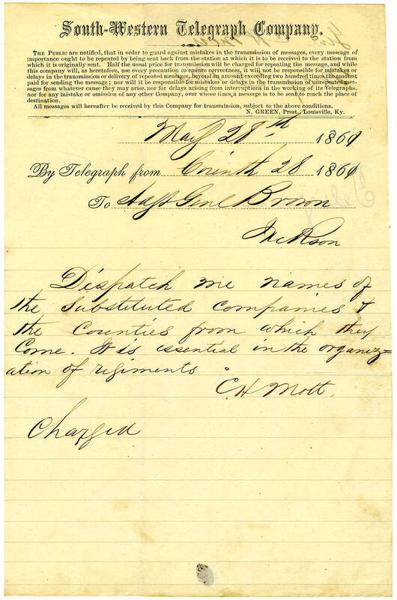 South-Western Telegraph Company.
THE PUBLIC are notified, that in order to guard against mistakes in the transmission of messages, every message of
importance ought to be repeated by being sent back from the station at which it is to be received to the station from
which it is originally sent. Half the usual price for transmission will be charged for repeating the message, and while
this company will, as heretofore, use every precaution to ensure correctness, it will not be responsible for mistakes or
delays in the transmission or delivery of repeated messages, beyond an amount exceeding two hundred times the amount
paid for sending the message; nor will it be responsible for mistakes or delays in the transmission of unrepeated mes-
sages from whatever cause they may arise, nor for delays arising from interruptions in the working of its Telegraphs,
nor for any mistake or omission of any other Company, over whose lines a message is to be sent to reach the place of
destination.
All messages will hereafter be received by this Company for transmission, subject to the above conditions.
N. GREEN, Prest., Louisville, Ky.
May 28th 1861
By Telegraph from Corinth 28 1861
To Adjt Genl Brown
Jackson
Dispatch me names of
the Substituted companies &
the Counties from which they
Come. It is essential in the organiz=
ation of regiments
C H Mott
Charged